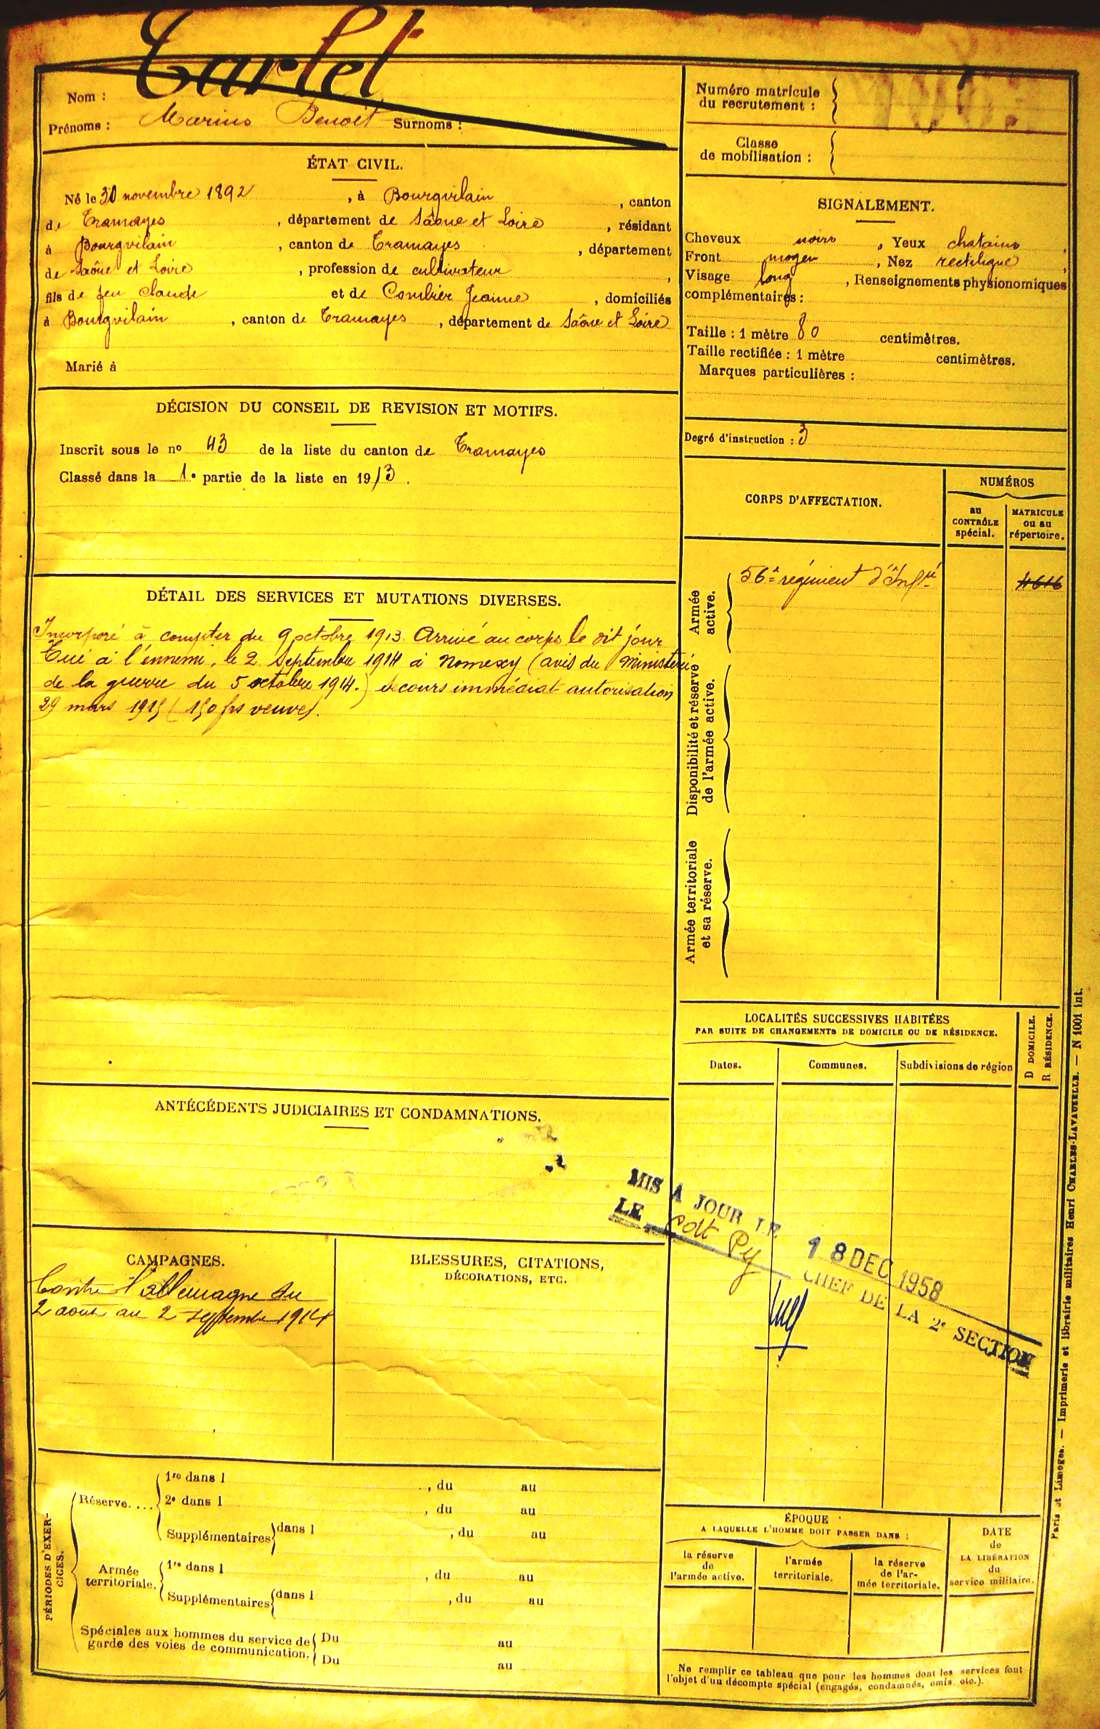 Tarlet
Nom :
Prénoms : Marius Benoît Surnoms :
ÉTAT CIVIL.
Né le 30 novembre 1892, à Bourgvilain, canton
de Tramayes, département de Saône et Loire, résidant
à Bourgvilain, canton de Tramayes, département
de Saône et Loire, profession de cultivateur,
fils de feu Claude et de Combier Jeanne, domiciliés
à Bourgvilain, canton de Tramayes, département de Saône et Loire
Marié à
DÉCISION DU CONSEIL DE REVISION ET MOTIFS.
Inscrit sous le nº 43 de la liste du canton de Tramayes
Classé dans la 1e partie de la liste en 1913.
DÉTAIL DES SERVICES ET MUTATIONS DIVERSES.
Incorporé à compter du 9 octobre 1913. Arrivé au corps le dit jour
Tué à l'ennemi, le 2 septembre 1914 à Nomexy (avis du Ministère
de la guerre du 5 octobre 1914.) Secours immédiat autorisation
29 mars 1915 (150 frs veuve).
ANTÉCÉDENTS JUDICIAIRES ET CONDAMNATIONS.
CAMPAGNES.
Contre l'allemagne du
2 août au 2 septembre 1914
BLESSURES, CITATIONS,
DÉCORATIONS, ETC.
PÉRIODES D'EXER-
CICES.
Réserve....
1re dans l , du au
2e dans l , du au
Supplémentaires dans l , du au
Armée
territoriale.
1re dans l , du au
Supplémentaires dans l , du au
Spéciales aux hommes du service de
garde des voies de communication.
Du au
Du au
Numéro matricule
du recrutement :
Classe
de mobilisation :
SIGNALEMENT.
Cheveux noirs, Yeux chatains,
Front moyen, Nez rectiligne,
Visage long, Renseignements physionomiques
complémentaires :
Taille : 1 mètre 80 centimètres.
Taille rectifiée : 1 mètre centimètres.
Marques particulières :
Degré d'instruction : 3
CORPS D'AFFECTATION.
NUMÉROS
au
CONTRÔLE
spécial.
MATRICULE
ou au
répertoire.
Armée
active.
56e régiment d'Infie
4616
Disponibilité et réserve
de l'armée active.
Armée territoriale
et sa réserve.
LOCALITÉS SUCCESSIVES HABITÉES
PAR SUITE DE CHANGEMENTS DE DOMICILE OU DE RÉSIDENCE.
D DOMICILE.
R RÉSIDENCE.
Dates.
Communes.
Subdivisions de région
MIS A JOUR LE 18 DEC 1958
LE Cdt Py CHEF DE LA 2e SECTION
ÉPOQUE
A LAQUELLE L'HOMME DOIT PASSER DANS :
la réserve
de
l'armée active.
l'armée
territoriale.
la réserve
de l'ar-
mée territoriale.
DATE
de
LA LIBÉRATION
du
service militaire.
Ne remplir ce tableau que pour les hommes dont les services font
l'objet d'un décompte spécial (engagés, condamnés, omis, etc.).
Paris et Limoges. — Imprimerie et librairie militaires Henri CHARLES-LAVAUZELLE. — N 1001 int.